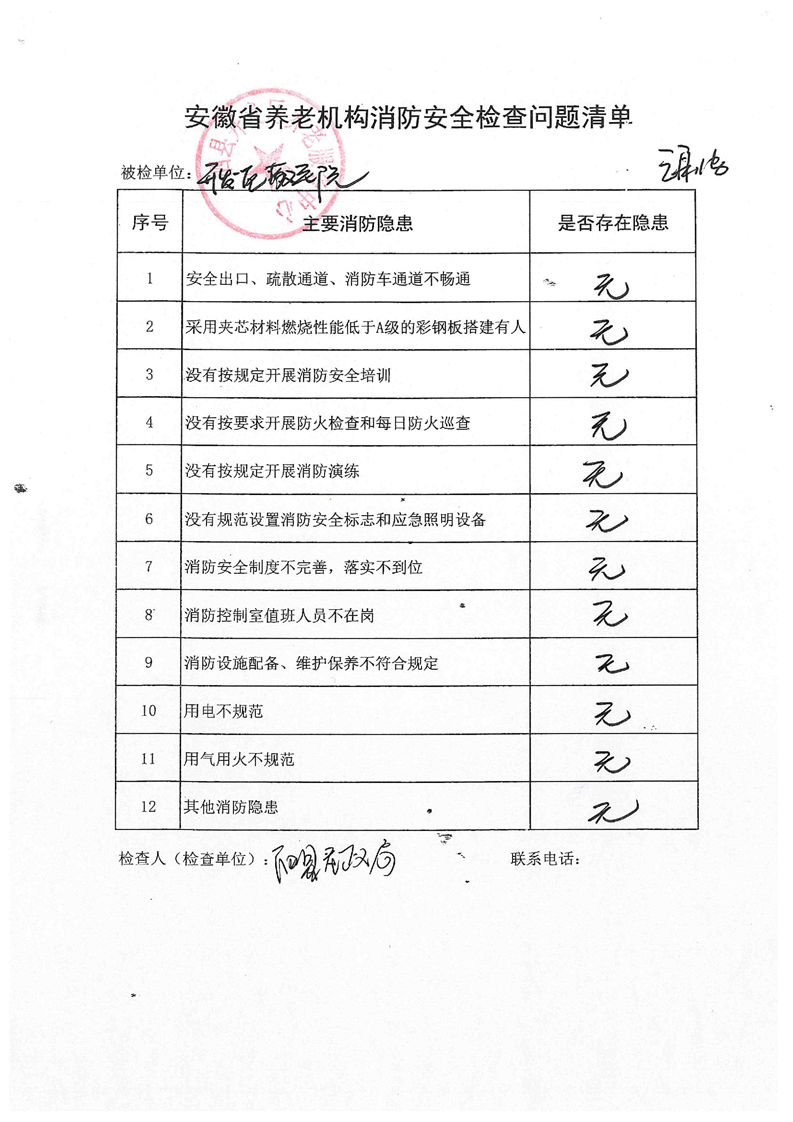 安徽省养老机构消防安全检查问题清单
被检单位：开发区敬老院
序号 主要消防隐患 是否存在隐患
1 安全出口、疏散通道、消防车通道不畅通 无
2 采用夹芯材料燃烧性能低于A级的彩钢板搭建有人 无
3 没有按规定开展消防安全培训 无
4 没有按要求开展防火检查和每日防火巡查 无
5 没有按规定开展消防演练 无
6 没有规范设置消防安全标志和应急照明设备 无
7 消防安全制度不完善，落实不到位 无
8 消防控制室值班人员不在岗 无
9 消防设施配备、维护保养不符合规定 无
10 用电不规范 无
11 用气用火不规范 无
12 其他消防隐患 无
检查人（检查单位）：县民政局 联系电话：